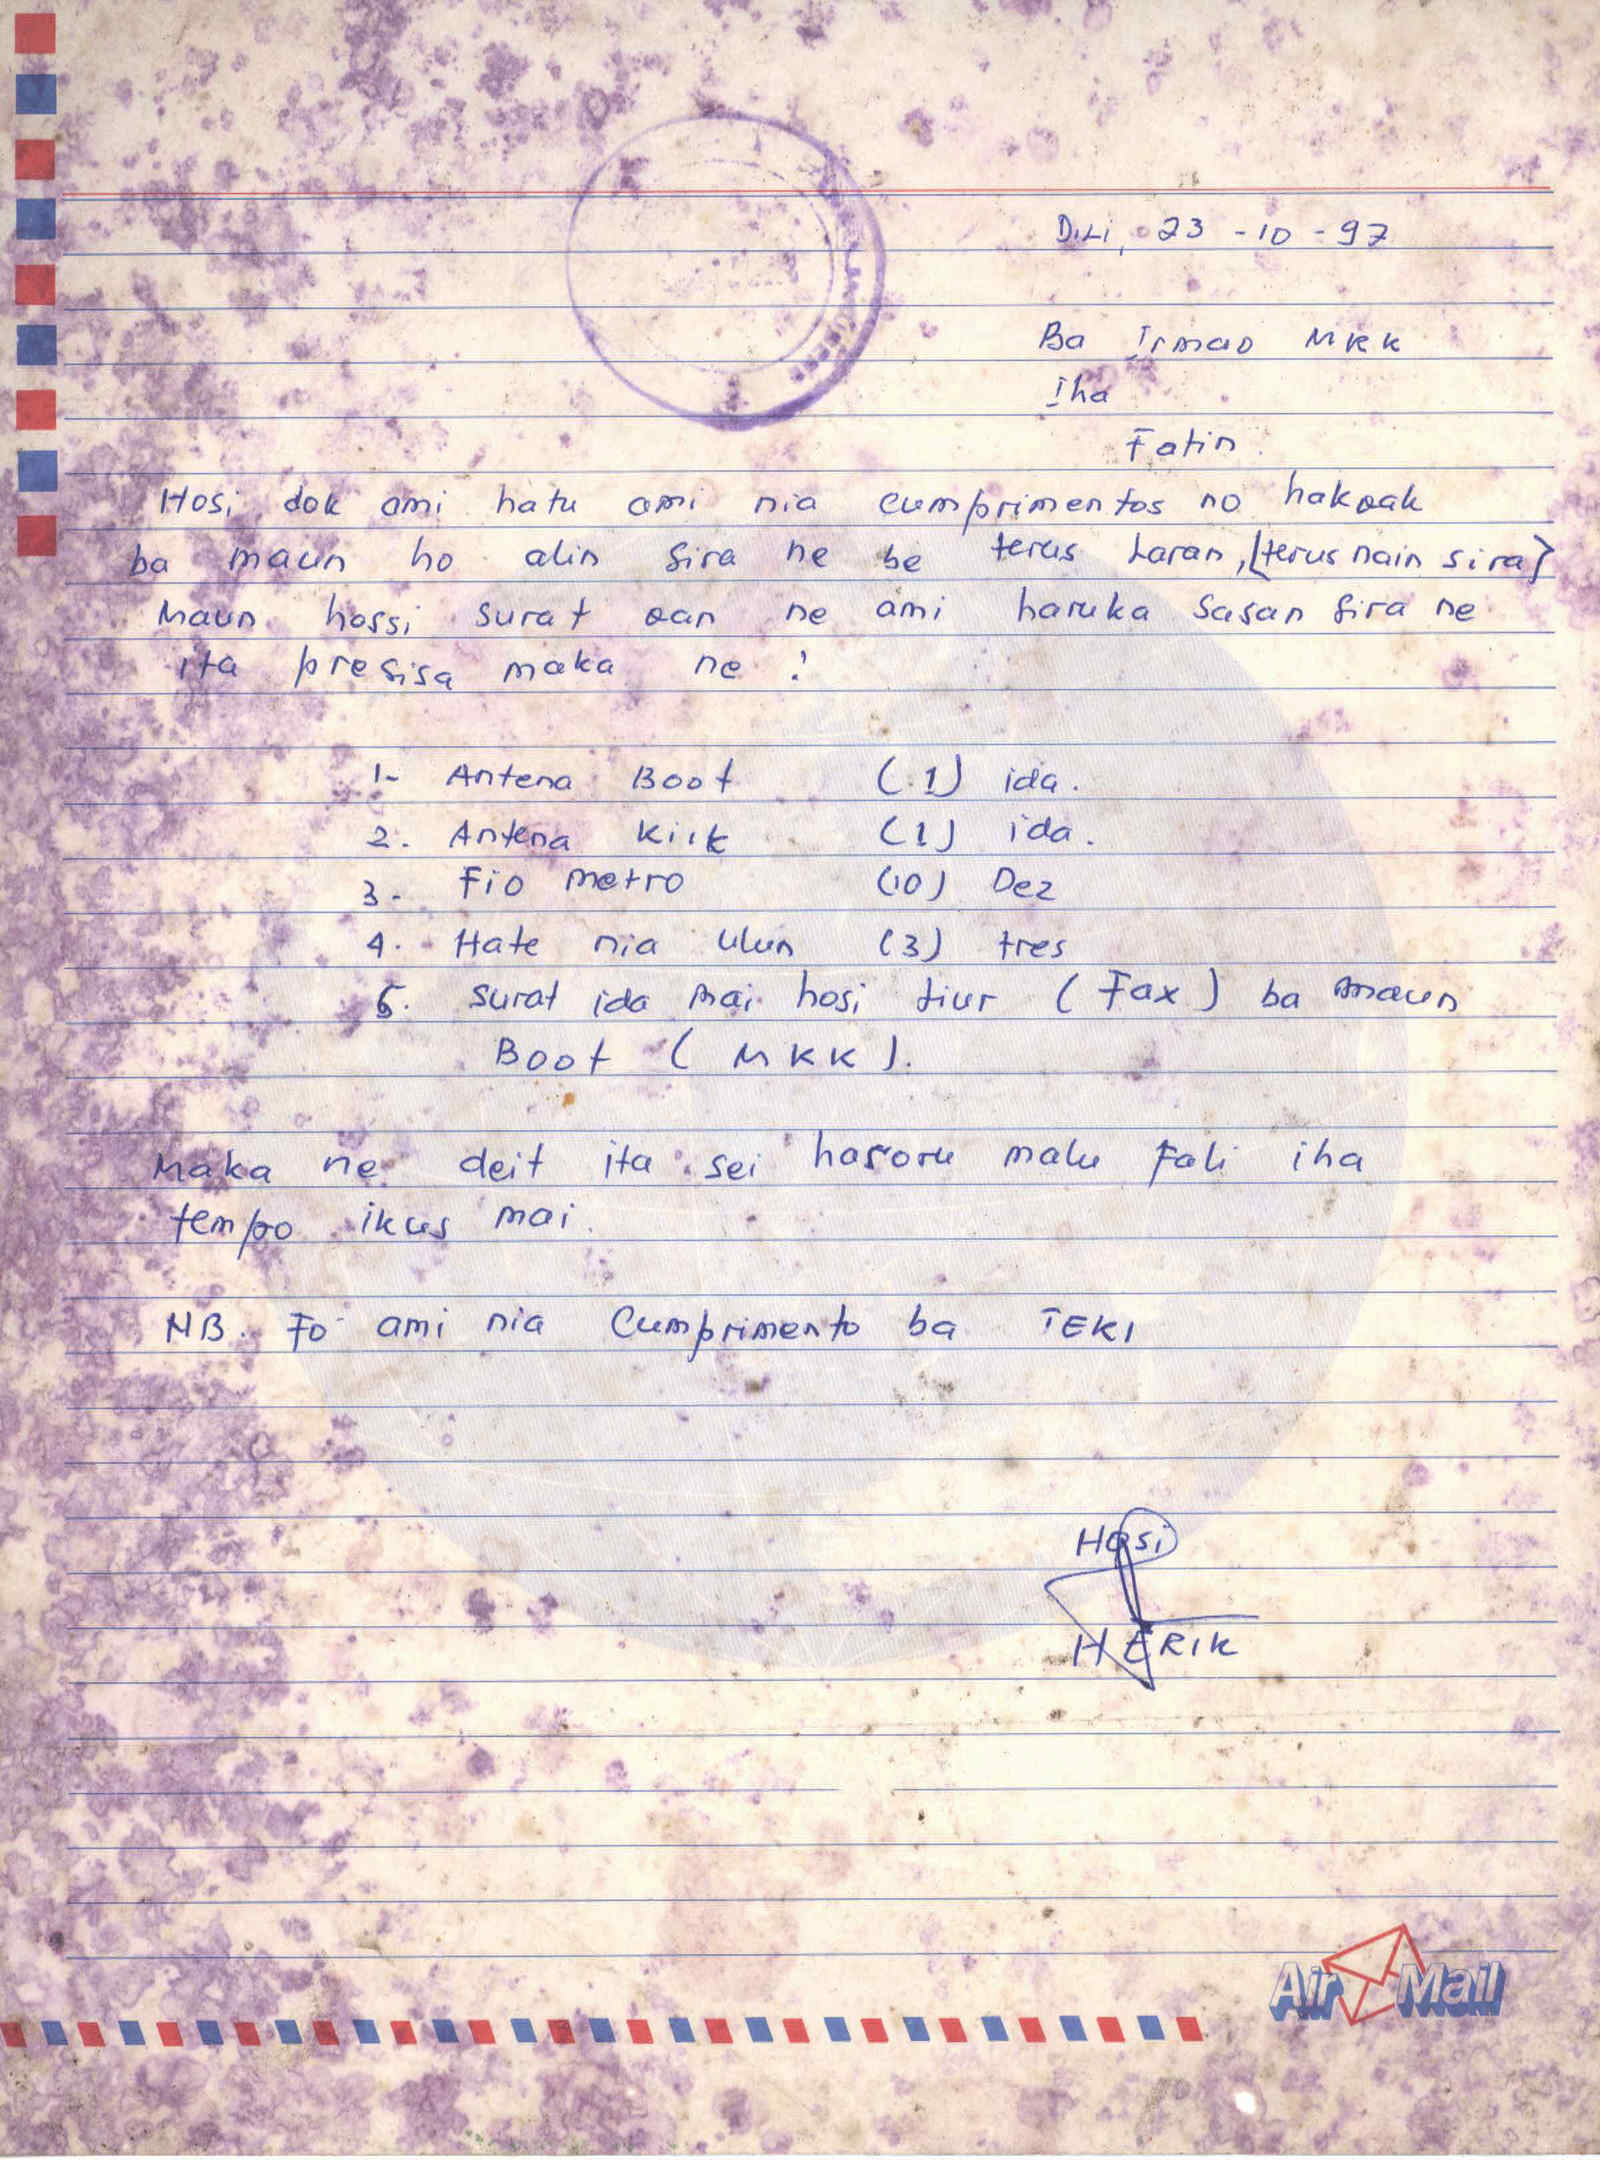 Dili, 23 - 10 - 97
Ba Irmao MKK
Iha
Fatin.
Hosi dok ami hatu ami nia cumprimentos no hakoak
ba maun ho alin sira ne be terus laran, (terus nain sira)
Maun hossi surat oan ne ami haruka sasan sira ne
ita presisa maka ne :
1- Antena Boot (1) ida.
2. Antena Kiik (1) ida.
3- Fio metro (10) Dez
4. Hate nia ulun (3) tres
5. surat ida mai hosi tiur (Fax) ba maun
Boot (MKK).
Maka ne deit ita sei hasoru malu fali iha
tempo ikus mai.
NB. Fo ami nia Cumprimento ba TEKI
Hosi
HERIK
Air Mail